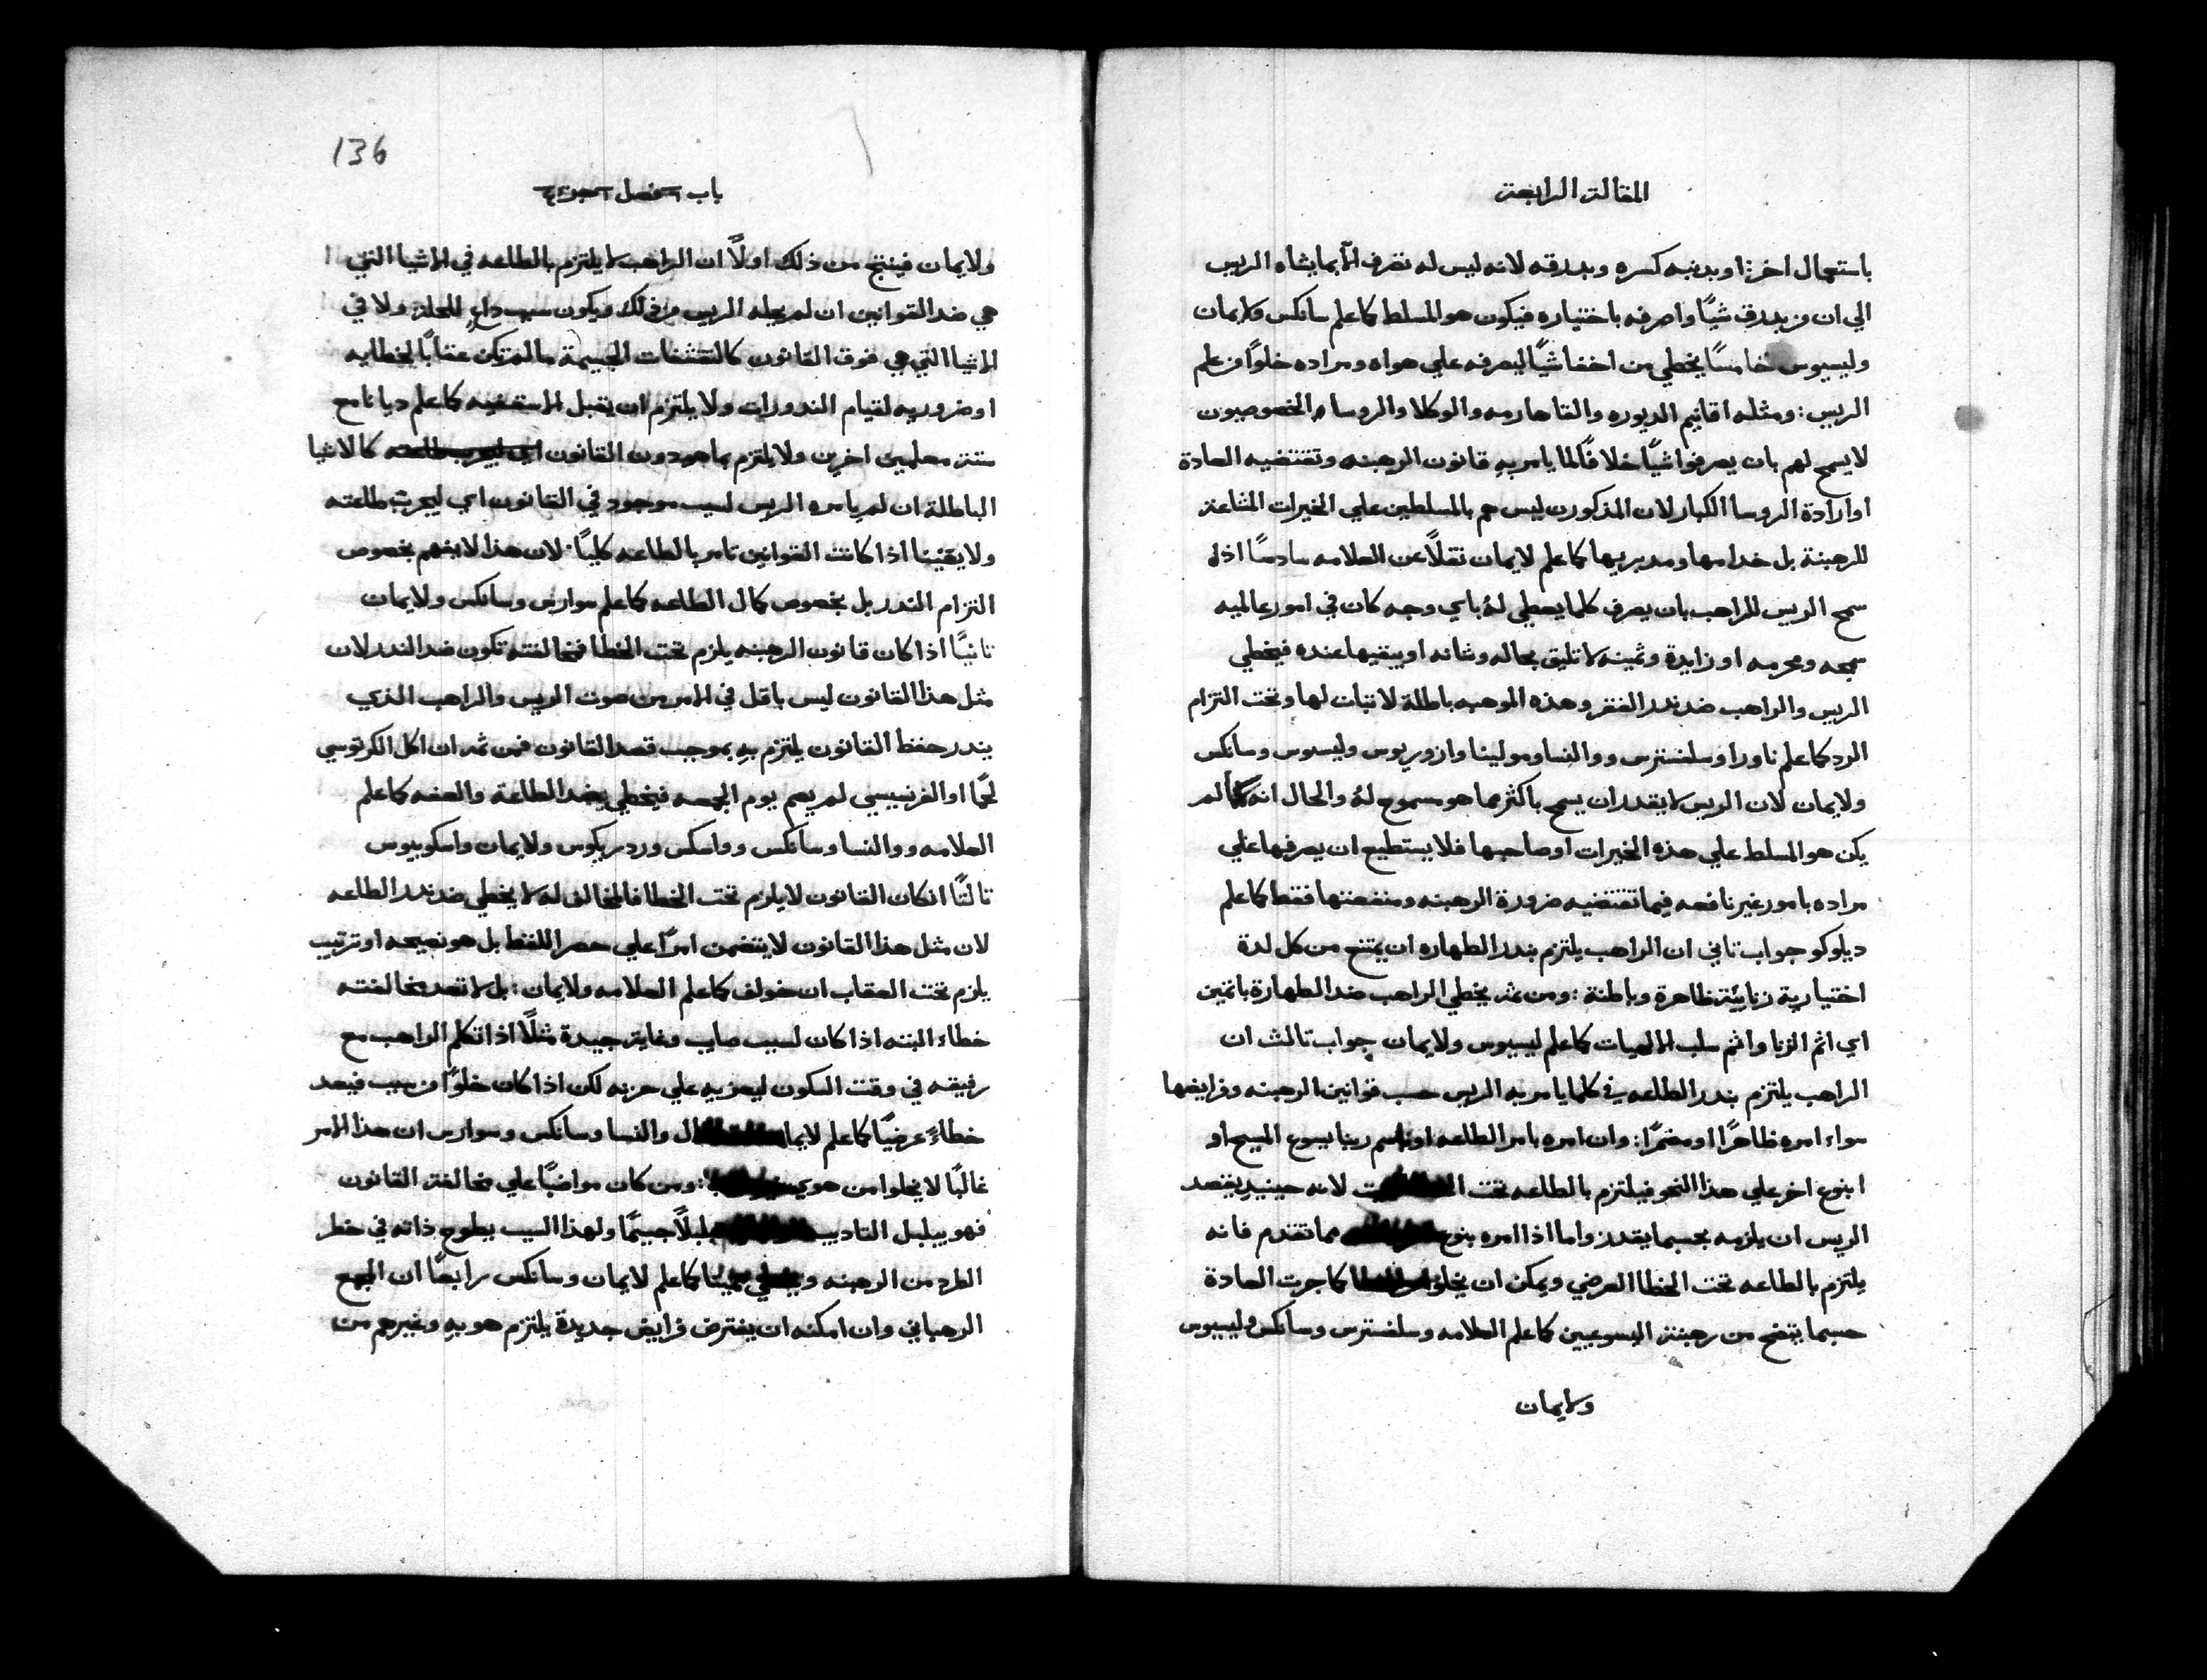 المقالة الرابعة
باستعمال اخر: او بدنبه كسره وبدرقه لانه ليس له تصرف الّا بما يشاه الريس
الي ان من بدرق شياً واصرفه باختياره فيكون هو المسلط كما علم سانكس ولايمان
وليسيوس خامساً يخطي من اخفا شياً ليصرفه علي هواه ومراده خلواً من علم
الريس: ومثله اقانيم الديوره والوكلا والروساء الخصوصيون
لا يسمح لهم بان يصرفوا شياً خلافاً لما يامر به قانون الرهبنه وتقتضيه العادة
او ارادة الروسا الكبار لان المذكورين ليس هم بالمسلطين علي الخيرات المشاعة
للرهبنة بل خدامها ومدبريها كما علم لايمان نقلاً عن العلامه سادساً اذا
سمح الريس للراهب بان يصرف كلما يعطي لهُ باي وجه كان في امور عالميه
سمجه ومحرمه او زايدة وثمينه لا تليق بحاله وشانه او يبقيها عنده فيخطي
الريس والراهب ضد ندر الفقر وهذه الموهبه باطلة لا تبات لها وتحت التزام
الرد كما علم ناورا وسلفسترس ووالنسا ومولينا وازوريوس وليسيوس وسانكس
ولايمان لان الريس لا يقدر ان يسمح باكثر مما هو مسموح لهُ والحال انه كما لم
يكن هو المسلط علي هذه الخيرات او صاحبها فلا يستطيع ان يصرفها علي
مراده بامور غير نافعه فيما تقتضيه ضرورة الرهبنه ومنفعتها فقط كما علم
ديلوكو جواب تاني ان الراهب يلتزم بندر الطهاره ان يمتنع من كل لدة
اختيارية زنايية ظاهرة وباطنة: ومن ثم يخطي الراهب ضد الطهارة باثمين
اي اثم الزنا واثم سلب الالهيات كما علم ليسيوس ولايمان جواب تالث ان
الراهب يلتزم بندر الطاعه في كلما يامر به الريس حسب قوانين الرهبنه وفرايضها
سواء امره ظاهراً او مضمراً: وان امره بامر الطاعه او باسم ربنا يسوع المسيح او
ابنوع اخر علي هذا النحو فيلتزم بالطاعه تحت لانه حينيدٍ يقصد
الريس ان يلزمه بحسبما يقدر واما اذا امره بنوع مما تقدم فانه
يلتزم بالطاعه تحت الخطا العرضي ويمكن ان يخلو كما جرت العادة
حسبما يتضح من رهبنة اليسوعيين كما علم العلامه وسلفسترس وسانكس وليسيوس
ولايمان
136
باب فصل
ولايمان فينتج من ذلك اولاً ان الراهب لا يلتزم بالطاعه في الاشيا التي
هي ضد القوانين ان لم يحله الريس من ذلك ويكون سبب داعٍ للحلة ولا في
الاشيا التي هي فوق القانون كالتقشفات الجسيمة ما لم تكن عقاباً لخطايه
او ضروريه لقيام الندورات ولا يلتزم ان يقبل الاسقفيه كما علم ديانا مع
ستة معلمين اخرين ولا يلتزم بما هو دون القانون كالاشيا
الباطلة ان لم يامره الريس لسبب موجود في القانون اي ليجرب طاعته
ولا يقيننا اذا كانت القوانين تامر بالطاعه كلياً لان هذا لا يفهم بخصوص
التزام الندر بل بخصوص كمال الطاعه كما علم سوارس وسانكس ولايمان
تانياً اذا كان قانون الرهبنه يلزم تحت الخطا فمخالفته تكون ضد الندر لان
مثل هذا القانون ليس باقل في الامر من صوت الريس والراهب الذي
يندر حفظ القانون يلتزم به بموجب قصد القانون فمن ثم ان اكل الكرتوسي
لحماً او الفرنسيسي لم يصم يوم الجمعه فيخطي ضد الطاعة والعفه كما علم
العلامه ووالنسا وسانكس وواسكس وردريكوس ولايمان واسكوبيوس
تالتاً ان كان القانون لا يلزم تحت الخطا فالمخالف له لا يخطي ضد ندر الطاعه
لان مثل هذا القانون لا يتضمن امراً علي حصر اللفظ بل هو نصيحه او ترتيب
يلزم تحت العقاب ان خولف كما علم العلامه ولايمان: بل لا تعد مخالفته
خطاء البته اذا كان لسبب صايب وغاية جيدة مثلاً اذا تكلم الراهب مع
رفيقه في وقت السكون ليعزيه علي حزنه لكن اذا كان خلواً من سبب فيعد
خطاءً عرضياً كما علم لايمان والنسا وسانكس وسوارس ان هذا الامر
غالباً لا يخلوا من هو :ومن كان مواضباً علي مخالفة القانون
فهو يبلبل التاديب بلبلاً جسيماً ولهذا السبب يطوح ذاته في خطر
الطرد من الرهبنه ويخطي مميتاً كما علم لايمان وسانكس رابعاً ان المجمع
الرهباني وان امكنه ان يفترض فرايض جديدة يلتزم هو به وغيرهم من